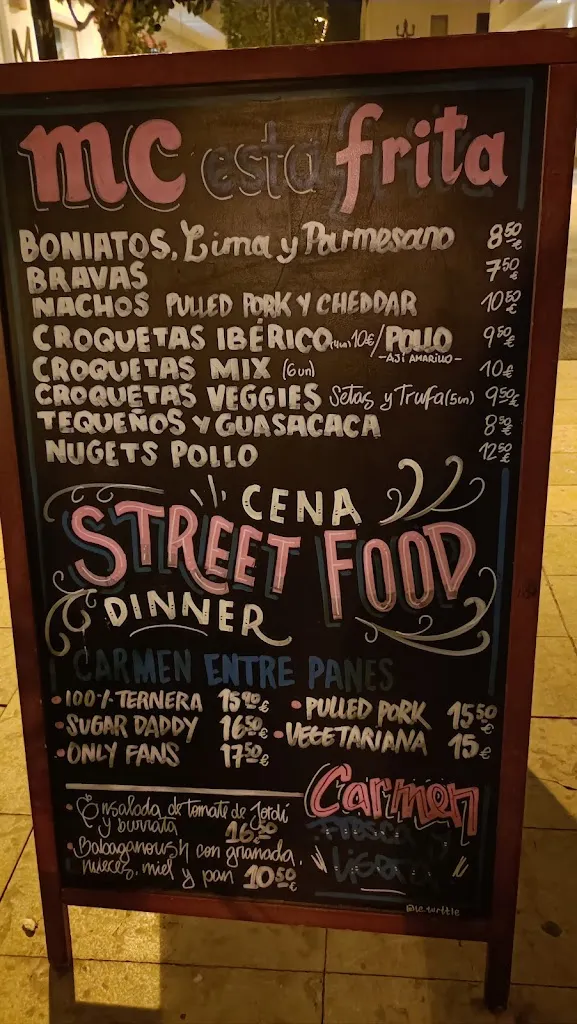 MC esta frita
BONIATOS, Lima y Parmesano 8'50€
BRAVAS 7'50€
NACHOS PULLED PORK Y CHEDDAR 10'50€
CROQUETAS IBÉRICO (4un) 10€ / POLLO 9'50€
-AJÍ AMARILLO-
CROQUETAS MIX (6un) 10€
CROQUETAS VEGGIES Setas y Trufa (5un) 9'50€
TEQUEÑOS Y GUASACACA 8'50€
NUGETS POLLO 12'50€
CENA
STREET FOOD
DINNER
CARMEN ENTRE PANES
• 100% TERNERA 15'90€ • PULLED PORK 15'50€
• SUGAR DADDY 16'50€ • VEGETARIANA 15€
• ONLY FANS 17'50€
Carmen
• Ensalada de tomate de Jordi
y burrata 16'50€
• Babaganoush con granada,
nueces, miel y pan 10'50€